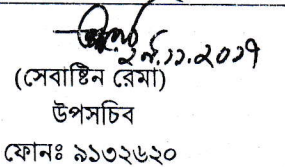 ২৮.১১.২০১৭
(সেবাষ্টিন রেমা)
উপসচিব
ফোনঃ ৯১৩২৬২০